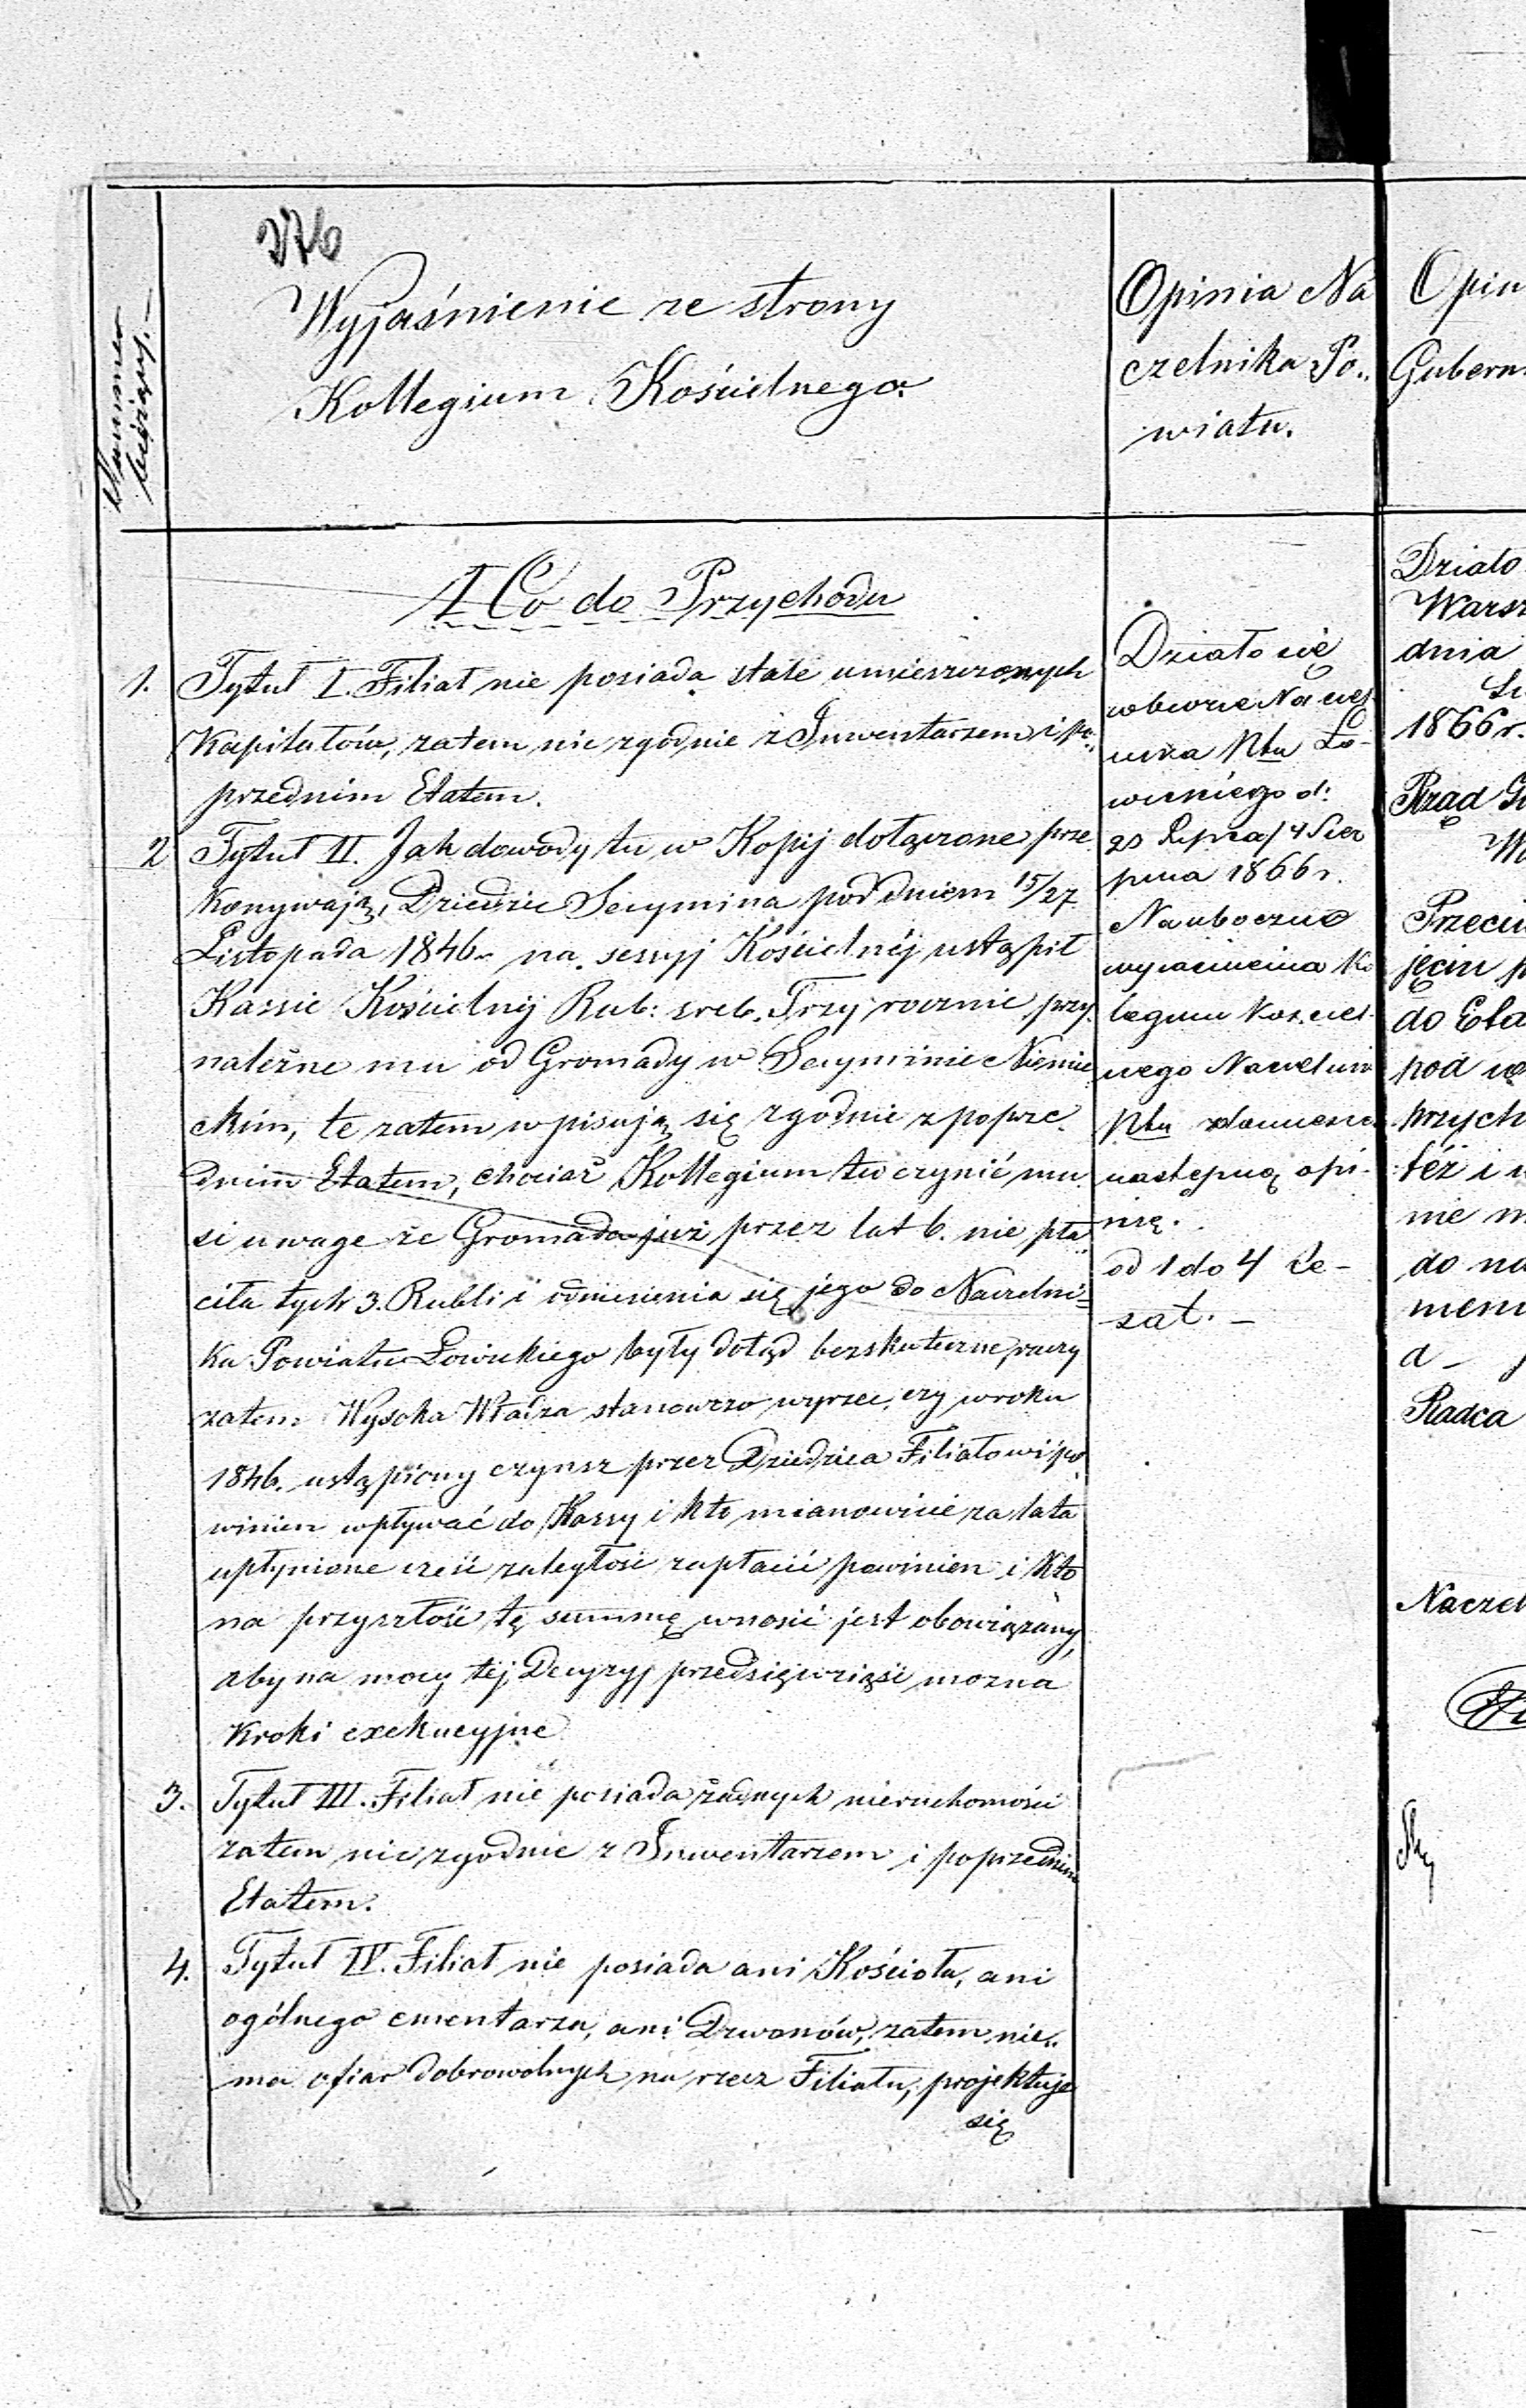 276
Numera
bieżący. —
Wyjaśnienie ze strony
Kollegium Kościelnego.
Opinia Na
czelnika Po..
wiatu.
Opin
Gubern
I Co do Przychodu
1. Tytuł I. Filiał nie posiada stale umieszczonych
Kapitałów, zatem nic zgodnie z Inwentarzem i po
przednim Etatem.
2 Tytuł II. Jak dowody tu w Kopij dołączone prze
konywają, Dziedzic Secymina pod dniem 15/27
Listopada 1846 r. na sessyj Kościelnéj ustąpił
Kassie Kościelnéj Rub: sreb. Trzy rocznie przy
należne mu od Gromady w Secyminie Niemie
ckim, te zatem wpisują się zgodnie z poprze.
dnim Etatem, chociaż Kollegium tu czynić mu
si uwagę że Gromada już przez lat 6. nie pła
ciła tych 3. Rubli i odniesienia się jego do Naczelni=
ka Powiatu Łowickiego były dotąd bezskuteczne, raczy
zatem Wysoka Władza stanowczo wyrzec, czy w roku
1846. ustąpiony czynsz przez Dziedzica Filiałowi po
winien wpływać do Kassy i kto mianowicie za lata
upłynione cześć zaległość zapłacić powinien i kto
na przyszłość tę summę wnosić jest obowiązany,
aby na mocy téj Decyzyj przedsięwziąść można
Kroki exekucyjne
3. Tytuł III. Filiał nie posiada żadnych nieruchomości
zatem nic zgodnie z Inwentarzem i poprzednim
Etatem.
4. Tytuł IV. Filiał nie posiada ani Kościoła, ani
ogólnego cmentarza, ani Dzwonów, zatem nie..
ma ofiar dobrowolnych na rzecz Filiału, projektuje
się
Działo się
w biorze Naczel
nika Ptu Ło-
wickiégo d:
23 Lipca/4 Sier
pnia 1866 r.
Na uboczne
wyjaśnienia Ko
legium Kościel
nego Naczelnik
Ptu
następną opi-
nię.
od 1 do 4 Ce-
sat. —
Działo
Warsz
dnia
1866 r.
Rząd G
Przeciw
jęciu p
do Eta
pod wz
przych
téż i w
nie m
do na
meni
a —
Radca
Naczel